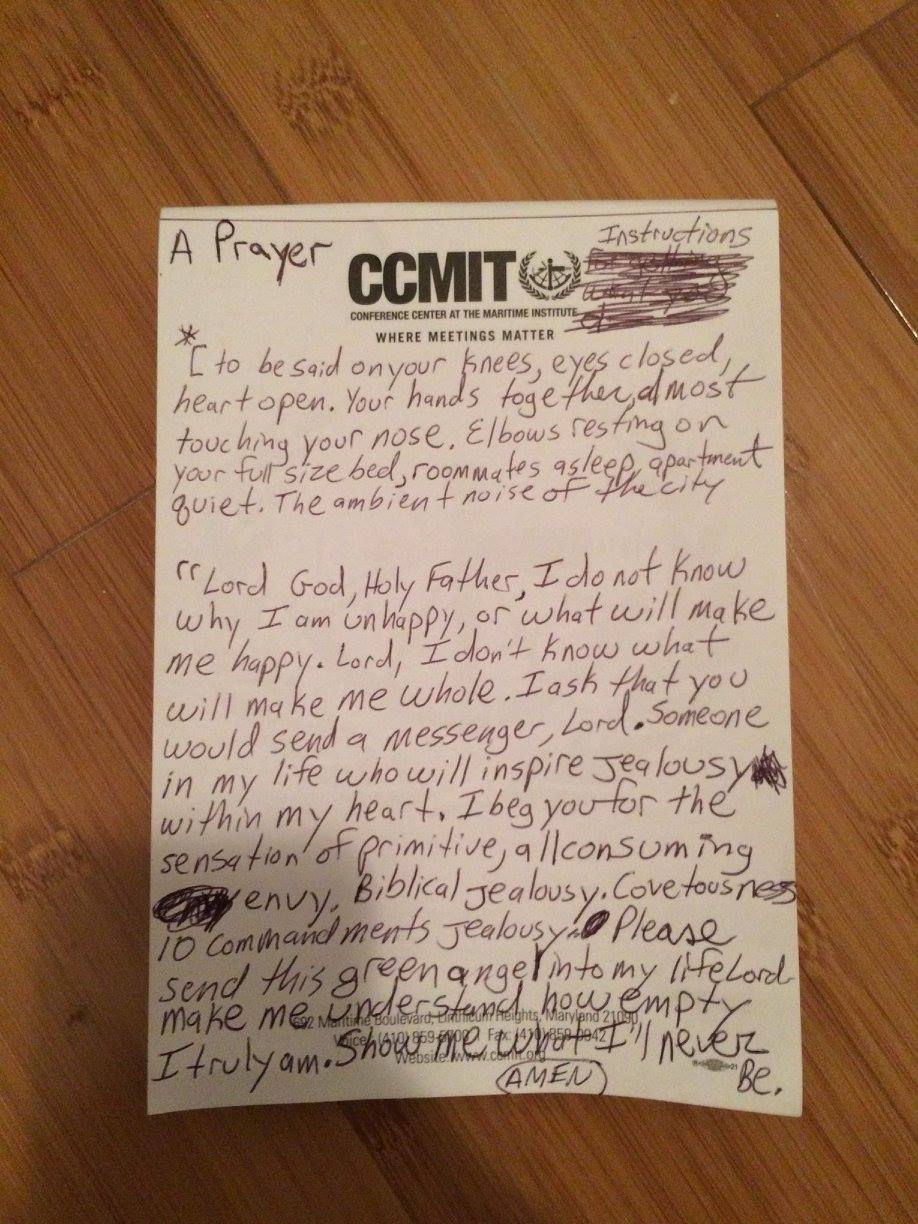 A Prayer
Instructions
CCMIT
CONFERENCE CENTER AT THE MARITIME INSTITUTE
WHERE MEETINGS MATTER
*[to be said on your knees, eyes closed,
heart open. Your hands together, almost
touching your nose. Elbows resting on
your full size bed, roommates asleep, apartment
quiet. The ambient noise of the city
"Lord God, Holy Father, I do not know
why I am unhappy, or what will make
me happy. Lord, I don't know what
will make me whole. I ask that you
would send a messenger, Lord. Someone
in my life who will inspire jealousy
within my heart. I beg you for the
sensation of primitive, all consuming
envy, Biblical jealousy. Covetousness
10 commandments jealousy. Please
send this green angel into my life Lord
make me understand how empty
I truly am. Show me what I'll never
Be.
AMEN
692 Maritime Boulevard, Linthicum Heights, Maryland 21090
Voice: (410) 859-5700 Fax: (410) 859-0942
Website: www.ccmit.org